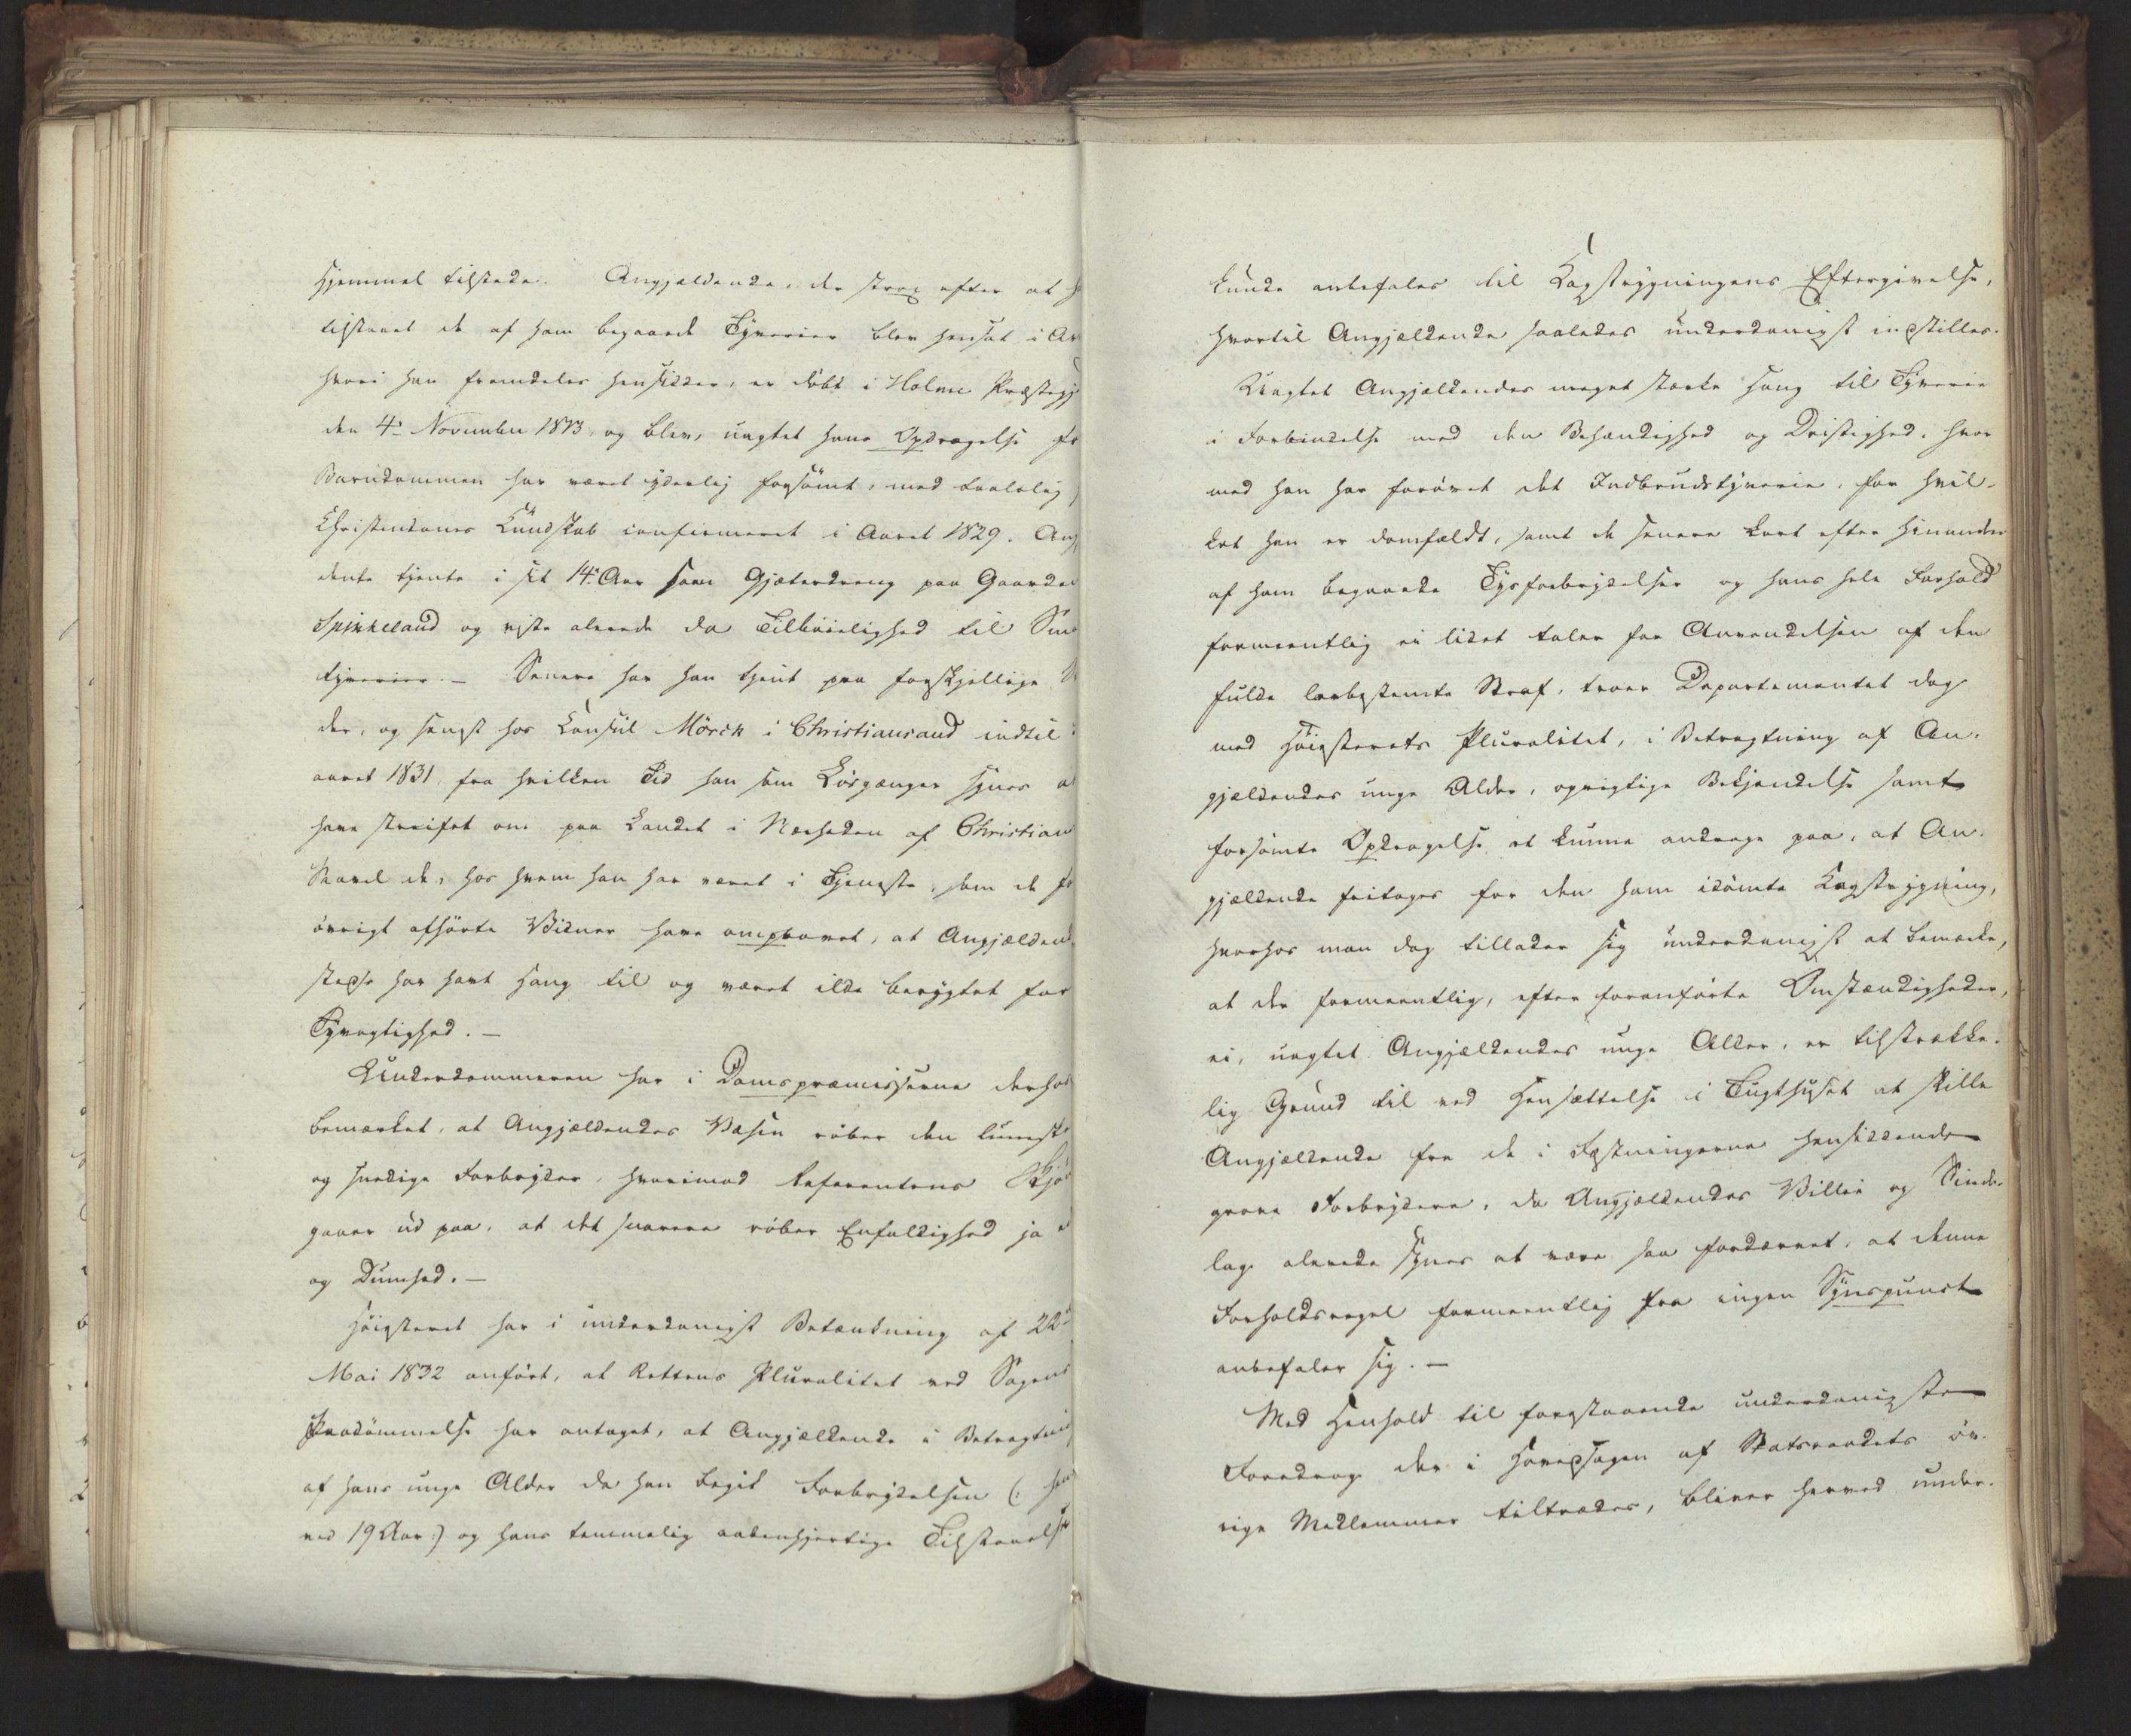 Hjemmel tilstede. Angjældende, der strax efter at h
tilstaaet de af ham begaaede Tyverier blev hensat i Ar
hvori han fremdeles hensidder, er döbt i Holme Præstegj
den 4de November 1813, og blev, uagtet hans Opdragelse fr
Barndommen har været yderlig forsömt, med taalelig
Christendoms Kundskab confirmeret i Aaret 1829. Ang
dente tjente i sit 14de Aar som Gjæterdreng paa Gaarden
Spikkeland og viste allerede da Tilböielighed til Smaa
tyverier. — Senere har han tjent paa forskjellige St
der, og senest hos Consul Mörch i Christiansand indtil
aaret 1831, fra hvilken Tid han som Lösgænger synes a
have streifet om paa Landet i Nærheden af Christian
Saavel de, hos hvem han har været i Tjeneste, som de fo
övrigt afhörte Vidner have omprovet, at Angjældend
stedse har havt Hang til og været ilde berygtet for
Tyvagtighed. —
Underdommeren har i Domspræmisserne derhos
bemærket, at Angjældendes Væsen röber den lumske
og snedige Forbryder, hvorimod Referentens Skjön
gaaer ud paa, at det snarere röber Enfoldighed ja
og Dumhed. —
Höiesteret har i underdanigst Betænkning af 22de
Mai 1832 anfört, at Rettens Pluralitet ved Sagens
Paadömmelse har antaget, at Angjældende i Betragtning
af hans unge Alder da han begik Forbrydelsen (: hen
ved 19 Aar :) og hans temmelig aabenhjertige Tilstaaelse
kunde anbefales til Kagstrygningens Eftergivelse,
hvortil Angjældende saaledes underdanigst indstilles.
Uagtet Angjældendes meget stærke Hang til Tyverie
i Forbindelse med den Behændighed og Dristighed, hvor
med han har forövet det Indbrudstyverie, for hvil-
ket han er domfældt, samt de senere kort efter hinanden
af ham begaaede Tyvsforbrydelser og hans hele Forhold
formeentlig ei lidet taler for Anvendelsen af den
fulde lovbestemte Straf, troer Departementet dog
med Höiesterets Pluralitet, i Betragtning af An-
gjældendes unge Alder, oprigtige Bekjendelse samt
forsömte Opdragelse, at kunne andrage paa, at An-
gjældende fritages for den ham idömte Kagstrygning,
hvorhos man dog tillader sig underdanigst at bemærke,
at der formeentlig, efter foranförte Omstændigheder,
ei, uagtet Angjældendes unge Alder, er tilstrække-
lig Grund til ved Hensættelse i Tugthuset at skille
Angjældende fra de i Fæstningerne hensiddende
grove Forbrydere, da Angjældendes Villie og Sinde-
lag allerede synes at være saa fordærvet, at denne
Forholdsregel formeentlig fra ingen Synspunct
anbefaler sig. —
Med Henhold til forestaaende underdanigste
Foredrag der i Hovedsagen af Statsraadets öv-
rige Medlemmer tiltrædes, bliver herved under-